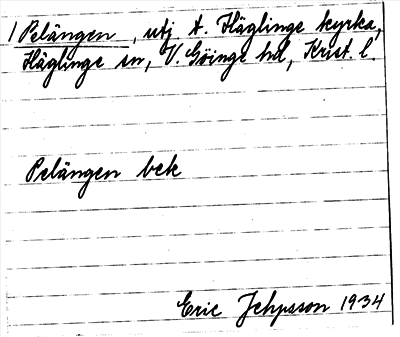 1 Pelängen, utj t. Häglinge kyrka,
Häglinge sn, V. Göinge hd, Krist. l.
Pelängen bek
Eric Jehpsson 1934